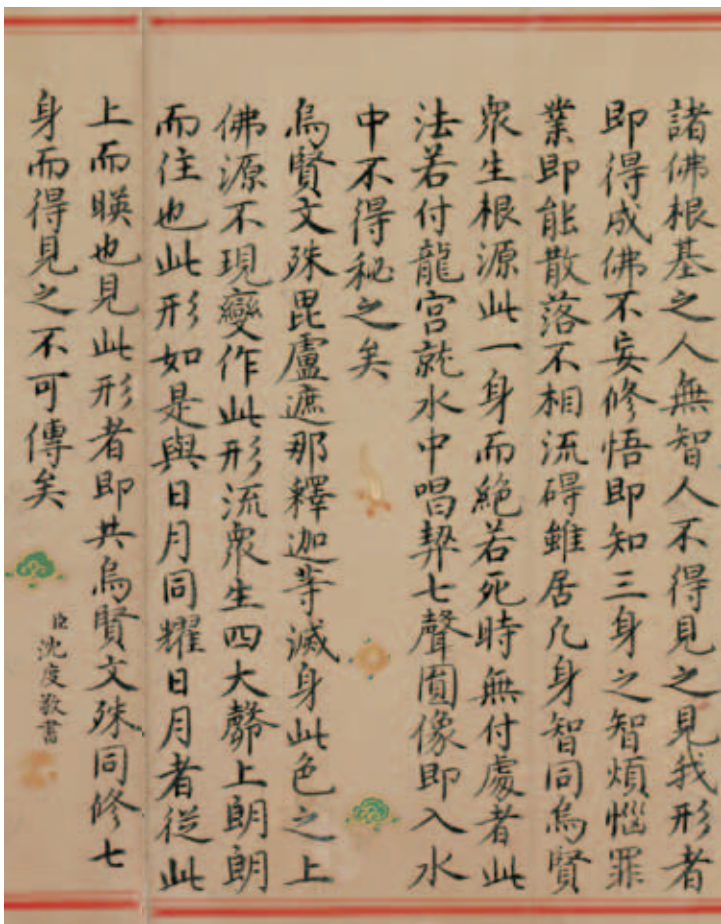 諸佛根基之人無智人不得見之見我形者
即得成佛不妄修悟即知三身之智煩惱罪
業即能散落不相流碍雖居凡身智同烏賢
衆生根源此一身而絕若死時無付處者此
法若付龍宮就水中唱契七聲圎像即入水
中不得秘之矣
烏賢文殊毘盧遮那釋迦等滅身此色之上
佛源不現變作此形流衆生四大臍上朗朗
而住也此形如是與日月同耀日月者從此
上而暎也見此形者即共烏賢文殊同修七
身而得見之不可傳矣
臣沈度敬書